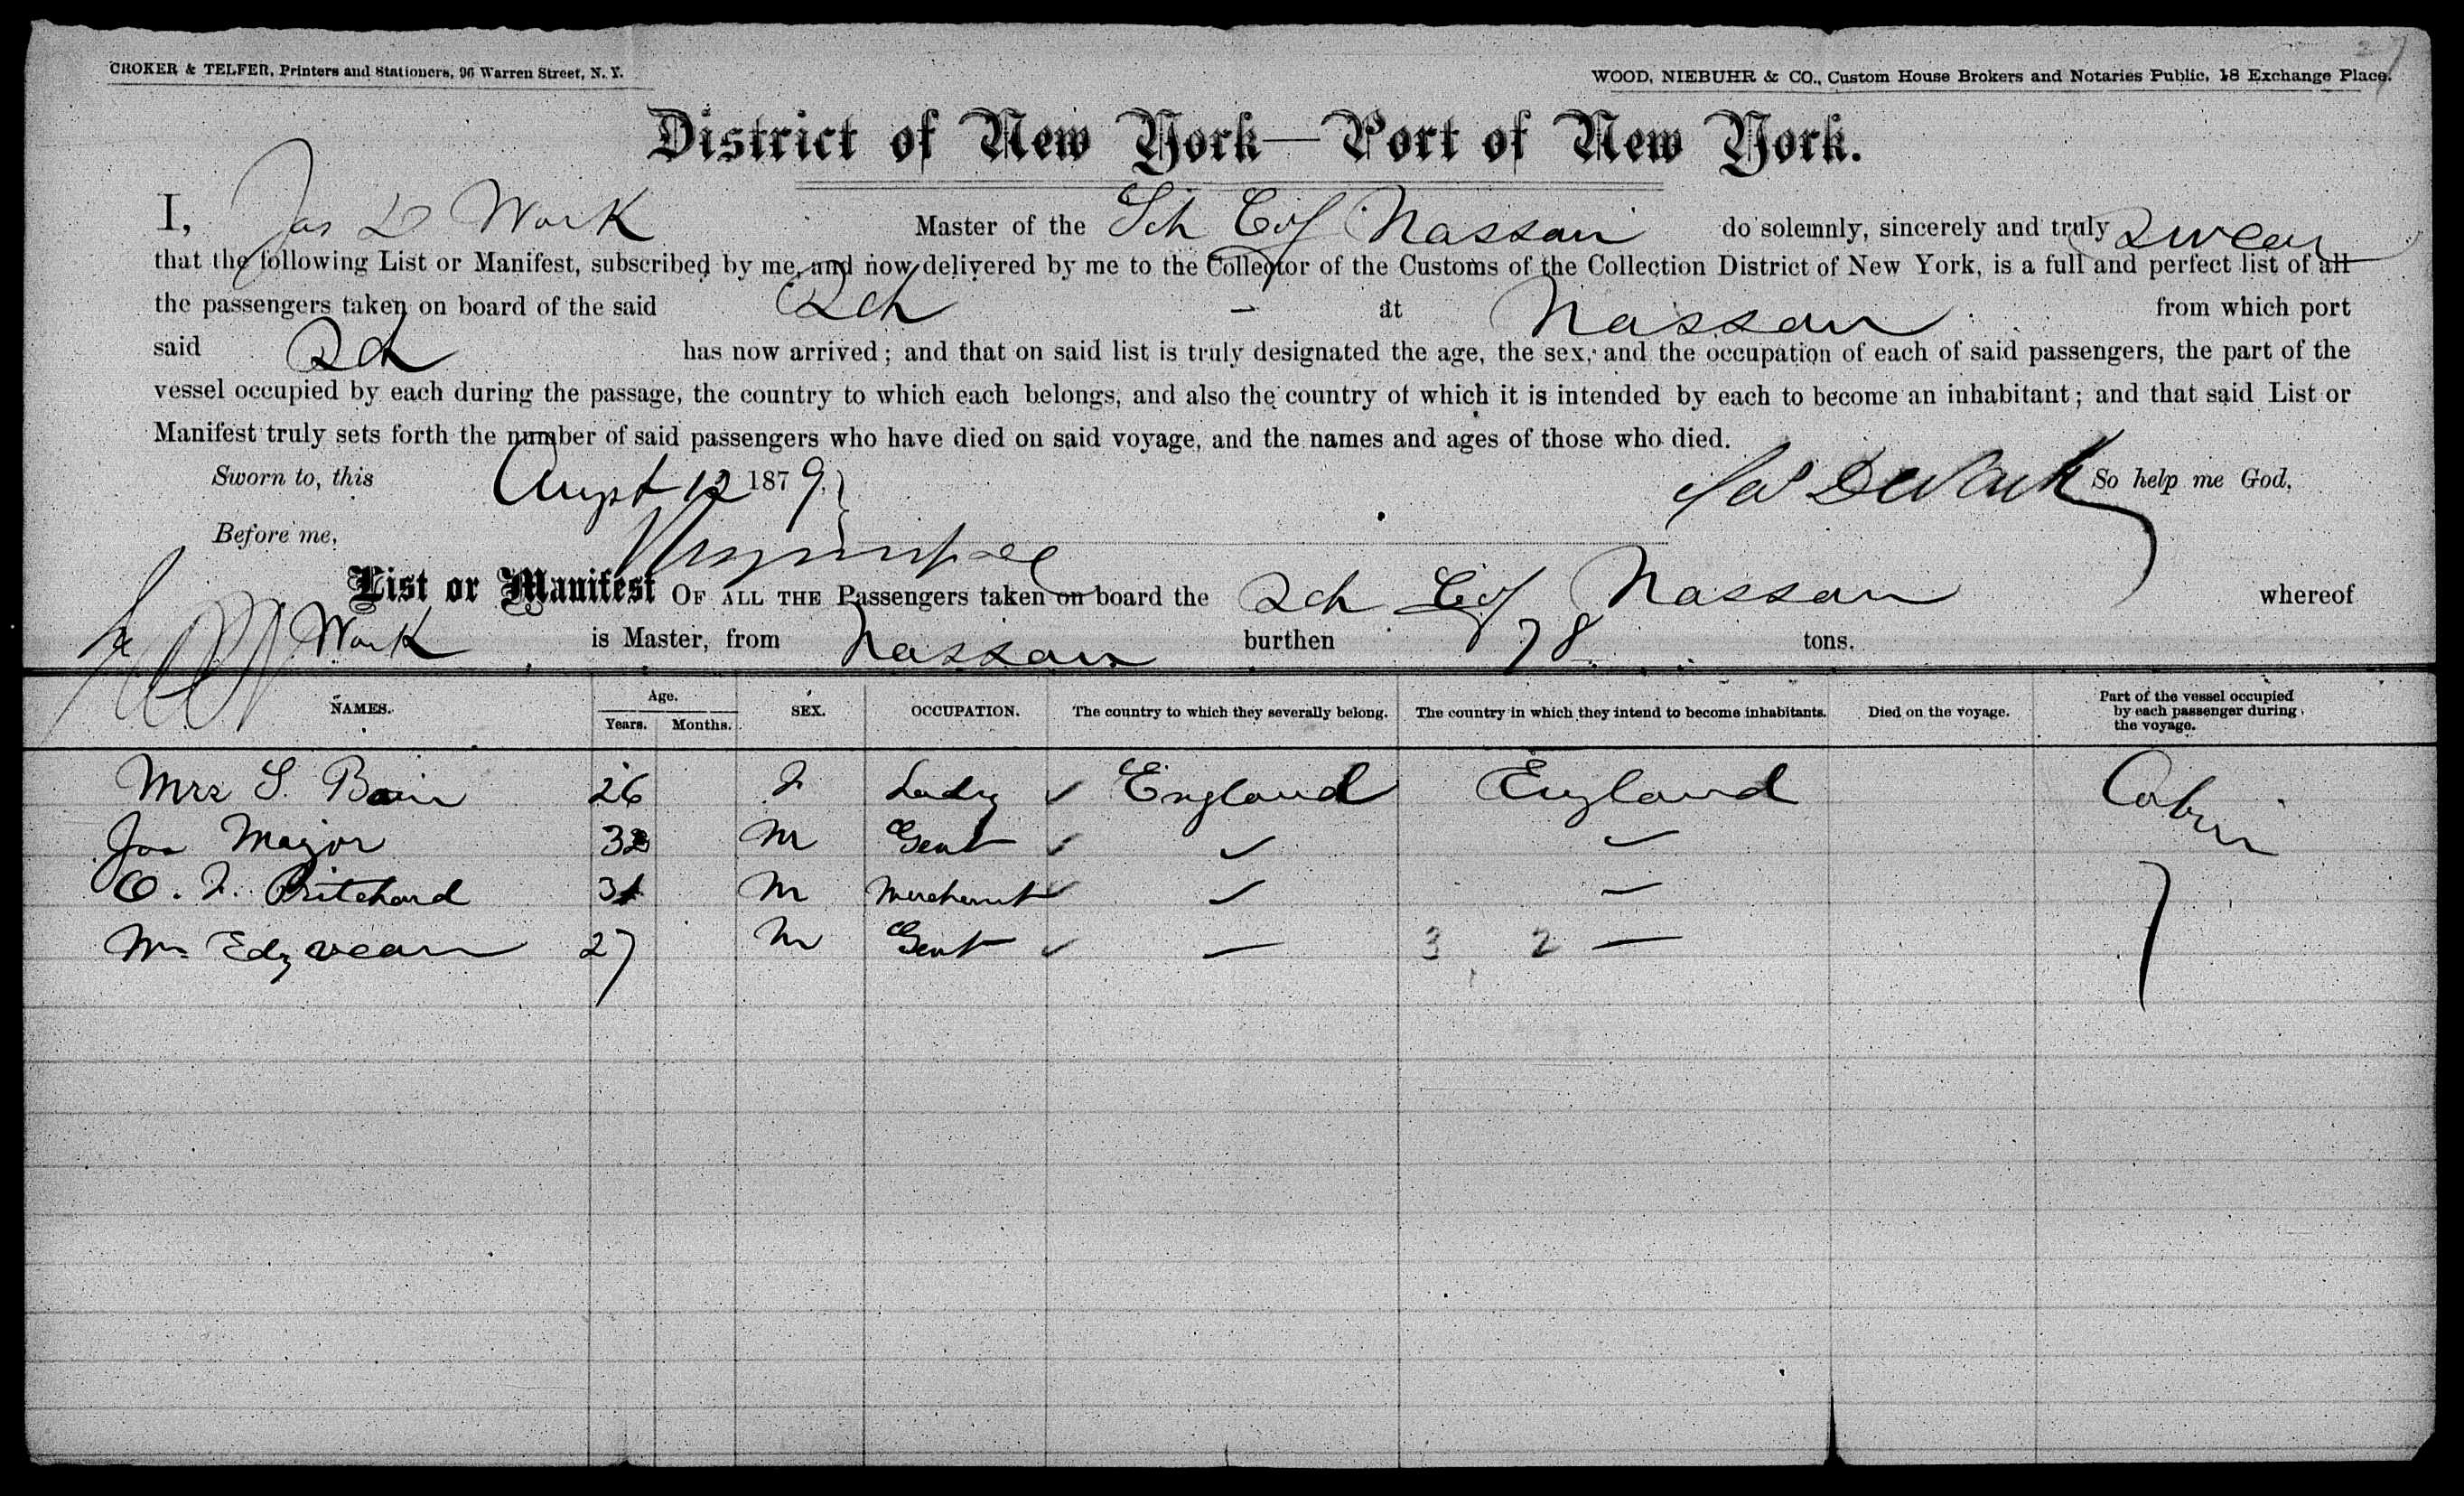 27
CROKER & TELFER, Printers and Stationers, 96 Warren Street, N. Y.
WOOD, NIEBUHR & CO., Custom House Brokers and Notaries Public, 18 Exchange Place.
District of New York—Port of New York.
I, Jas D Work Master of the Sch City Nassau do solemnly, sincerely and truly swear
that the following List or Manifest, subscribed by me, and now delivered by me to the Collector of the Customs of the Collection District of New York, is a full and perfect list of all
the passengers taken on board of the said Sch - at Nassau from which port
said Sch has now arrived; and that on said list is truly designated the age, the sex, and the occupation of each of said passengers, the part of the
vessel occupied by each during the passage, the country to which each belongs, and also the country of which it is intended by each to become an inhabitant; and that said List or
Manifest truly sets forth the number of said passengers who have died on said voyage, and the names and ages of those who died.
Sworn to, this Augst 12 1879. Jas D Work So help me God,
Before me,
List or Manifest OF ALL THE Passengers taken on board the Sch City Nassau whereof
Work is Master, from Nassau burthen 78 tons.
NAMES. Age. Years. Months. SEX. OCCUPATION. The country to which they severally belong. The country in which they intend to become inhabitants. Died on the voyage. Part of the vessel occupied by each passenger during the voyage.
Mrs S. Bain 26 F Lady England England Cabin
Jas Major 32 M Gent
O. F. Pritchard 31 M Merchant
Wm Edgvean 27 M Gent 3 2